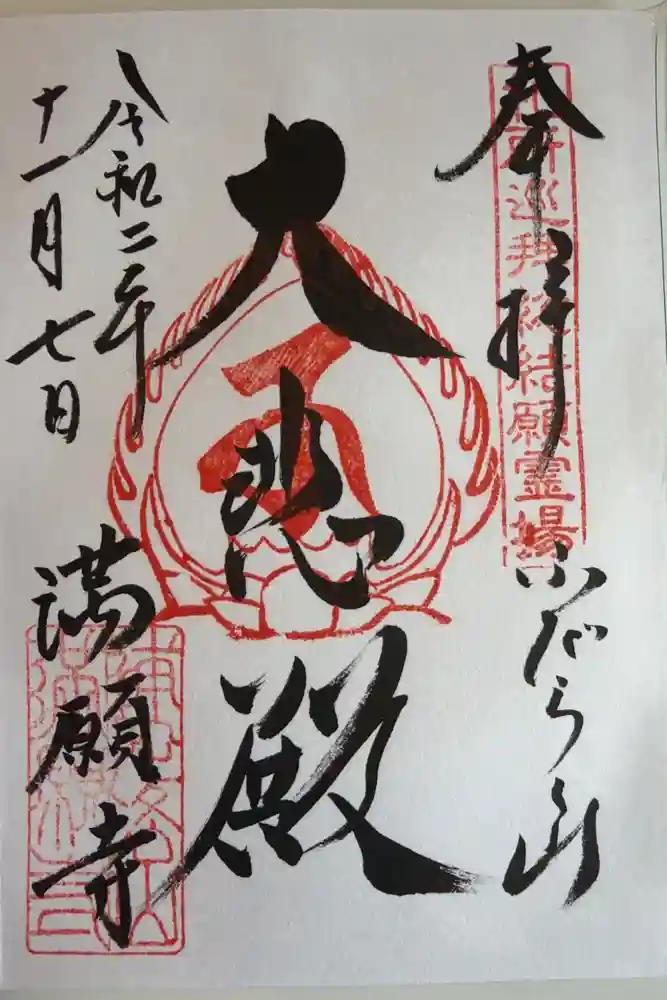 奉拝
所巡拝総結願霊場
ふだら山
大悲殿
令和二年
十一月七日
満願寺